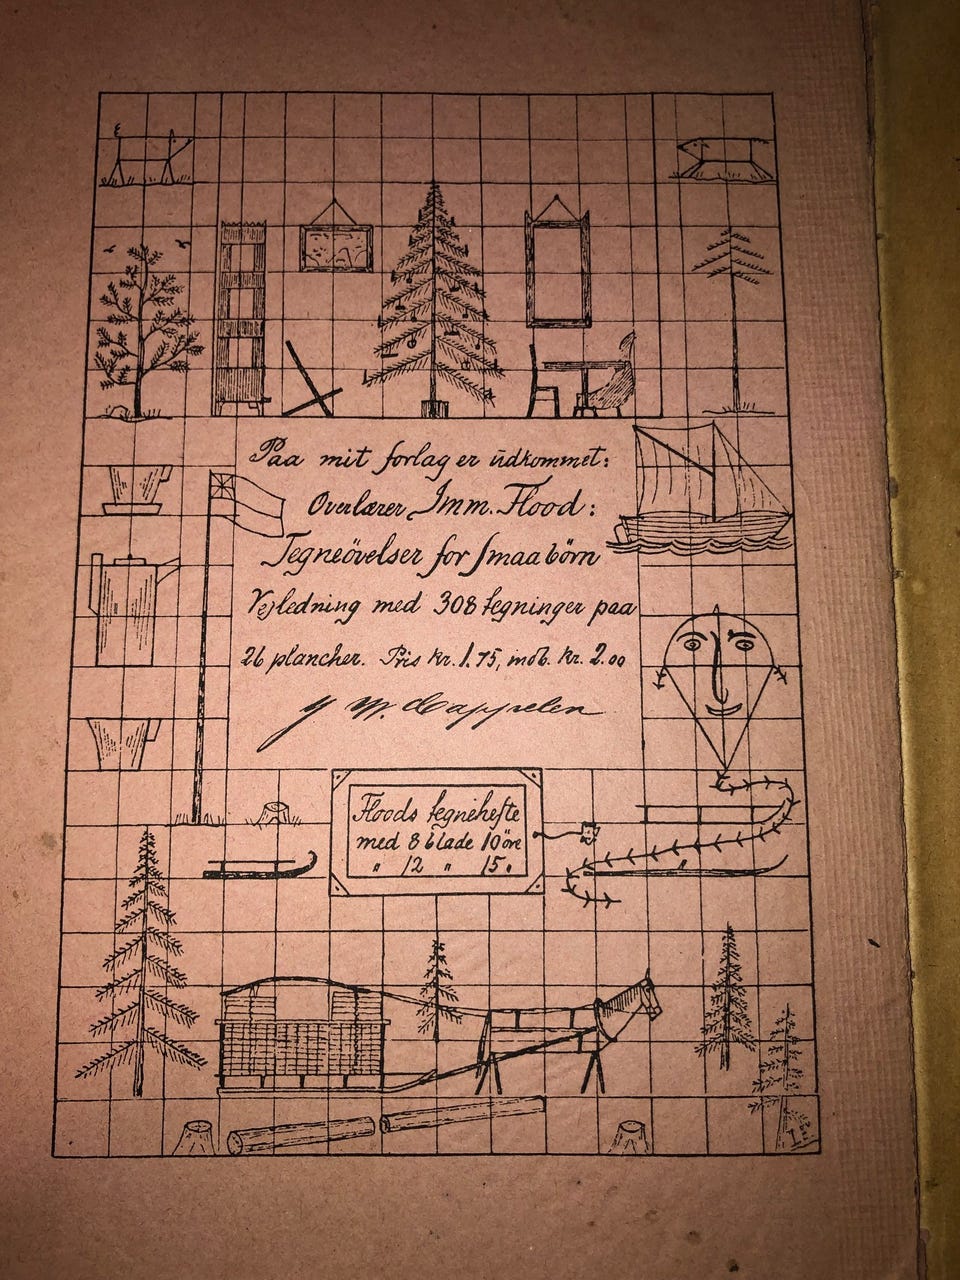 Paa mit forlag er udkommet:
Overlærer Imm. Flood:
Tegneövelser for Smaabörn
Vejledning med 308 tegninger paa
26 plancher. Pris kr. 1.75, indb. kr. 2.00
J W. Cappelen
Floods tegnehefte
med 8 blade 10 öre
" 12 " 15 "